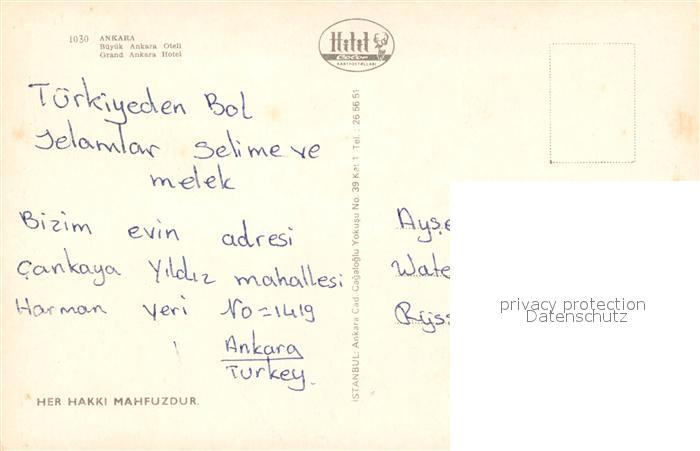 1030 ANKARA
Büyük Ankara Oteli
Grand Ankara Hotel
Hitit
Color
KARTPOSTALLARI
Türkiyeden Bol
selamlar selime ve
melek
Bizim evin adresi
Çankaya Yıldız mahallesi
Harman yeri No=1419
Ankara
Turkey.
HER HAKKI MAHFUZDUR.
İSTANBUL: Ankara Cad. Cağaloğlu Yokuşu No. 39 Kat 1 Tel.: 26 56 51
Ayşe
Wate
Rijs
privacy protection
Datenschutz